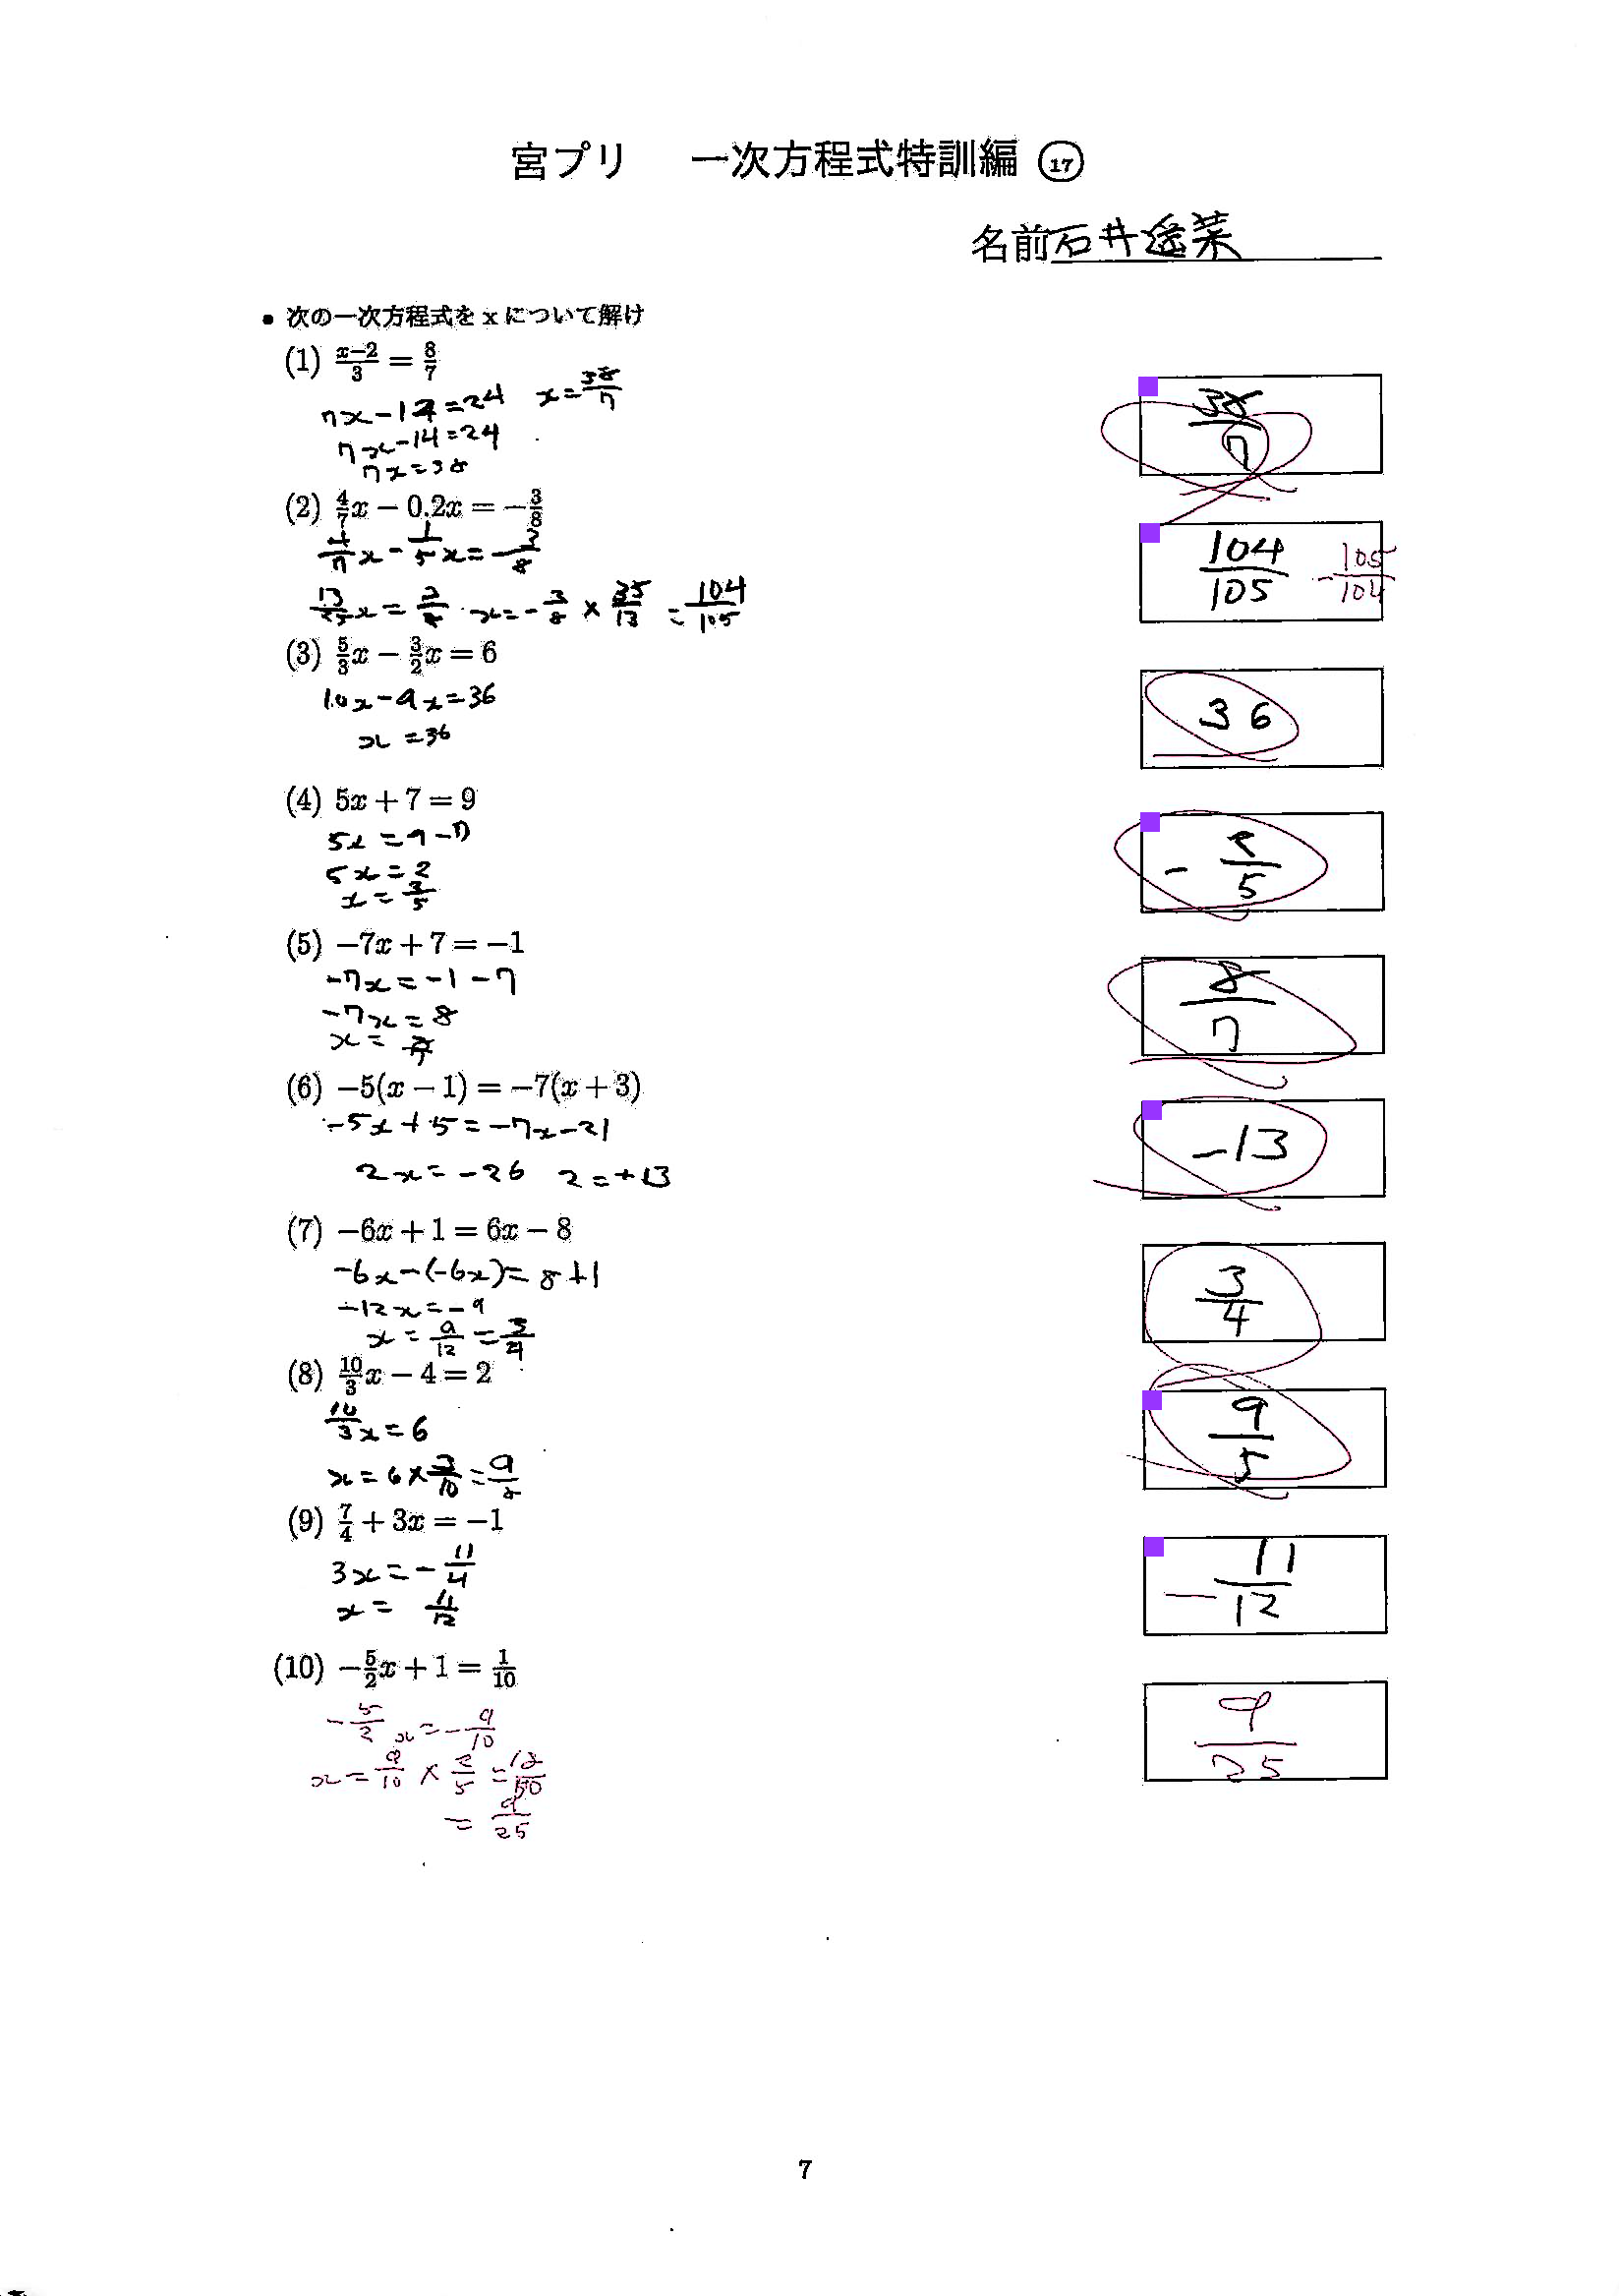 宮プリ 一次方程式特訓編 ⑰
名前 石井遥菜
• 次の一次方程式をxについて解け
(1) \frac{x-2}{3} = \frac{8}{7}
7x-14=24 x=\frac{38}{7}
7x-14=24
7x=38
\frac{38}{7}
(2) \frac{4}{7}x - 0.2x = -\frac{3}{8}
\frac{4}{7}x - \frac{1}{5}x = -\frac{3}{8}
\frac{13}{35}x = \frac{3}{8} x=-\frac{3}{8} × \frac{35}{13} = \frac{104}{105}
\frac{104}{105} -\frac{105}{104}
(3) \frac{5}{3}x - \frac{3}{2}x = 6
10x-9x=36
x=36
36
(4) 5x + 7 = 9
5x=9-7
5x=2
x=\frac{2}{5}
-\frac{2}{5}
(5) -7x + 7 = -1
-7x=-1-7
-7x=8
x=\frac{8}{7}
\frac{8}{7}
(6) -5(x - 1) = -7(x + 3)
-5x+5=-7x-21
2x=-26 2=+13
-13
(7) -6x + 1 = 6x - 8
-6x-(-6x)=8+1
-12x=-9
x=\frac{9}{12}=\frac{3}{4}
\frac{3}{4}
(8) \frac{10}{3}x - 4 = 2
\frac{10}{3}x=6
x=6×\frac{3}{10}=\frac{9}{5}
\frac{9}{5}
(9) \frac{7}{4} + 3x = -1
3x=-\frac{11}{4}
x= \frac{11}{12}
-\frac{11}{12}
(10) -\frac{5}{2}x + 1 = \frac{1}{10}
-\frac{5}{2}x=-\frac{9}{10}
x=\frac{9}{10}×\frac{2}{5}=\frac{18}{50}
=\frac{9}{25}
\frac{9}{25}
7